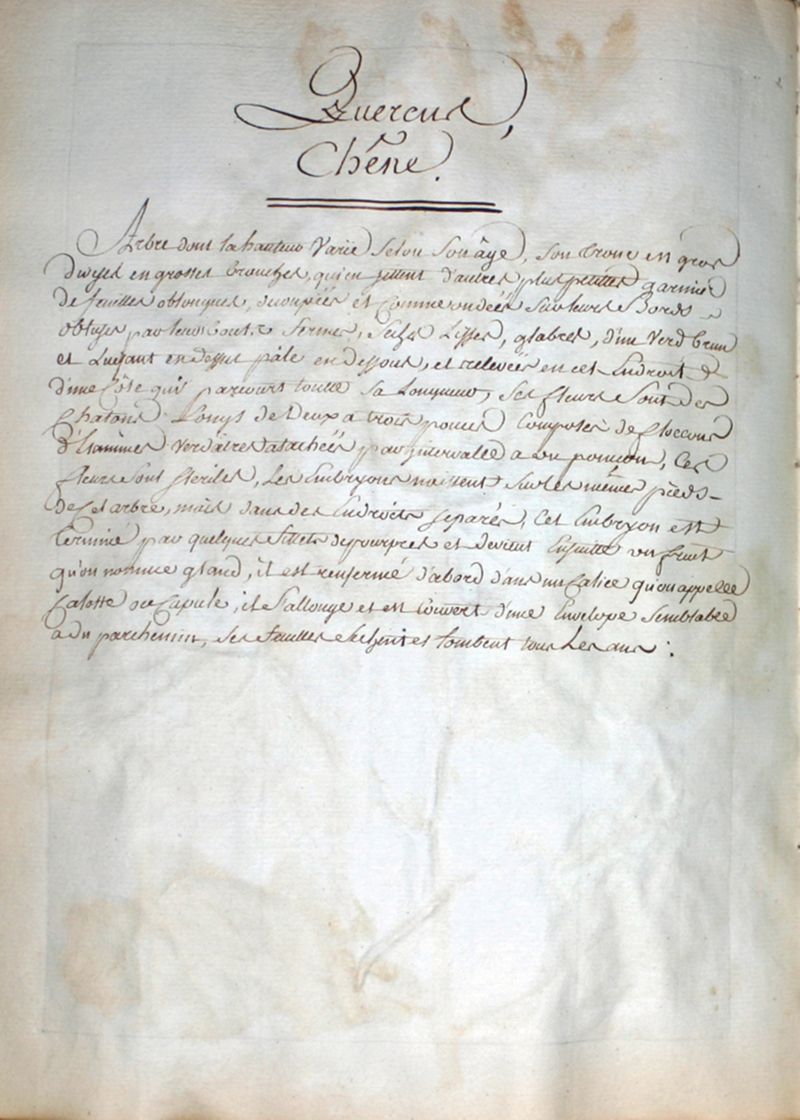 Quercus,
Chêne.
Arbre dont la hauteur Varie Selon Son âge, Son tronc est gros
Divisé en grosses branches, qu'en jettent d'autres plus petittes garnies
de feuilles oblongues, decoupées et Comme ondées Sur leurs Bords
obtuses par leur bout, fermes, Lisses, glabres, d'un Verd brun
et Luisant en dessus pâle en dessous, et relevées en cet Endroit
d'une Côte qui parcourt toutte Sa Longueur, Ses fleurs Sont des
Chatons Longs de Deux a trois pouces Composés de floccons
d'Etamines Verdâtres atachées par intervalle a un Ces
fleurs Sont steriles, Les Embryons naissent Sur les mêmes pieds
de Cet arbre, mais dans des Endroits separés, Cet Embryon est
terminé par quelques fillets et devient Ensuitte un fruit
qu'on nomme gland, il est renfermé d'abord dans un Calice qu'on appelle
Calotte ou Capule, il S'allonge et est Couvert d'une Envelope Semblable
a du parchemin, Ses feuilles et tombent tous Les ans :